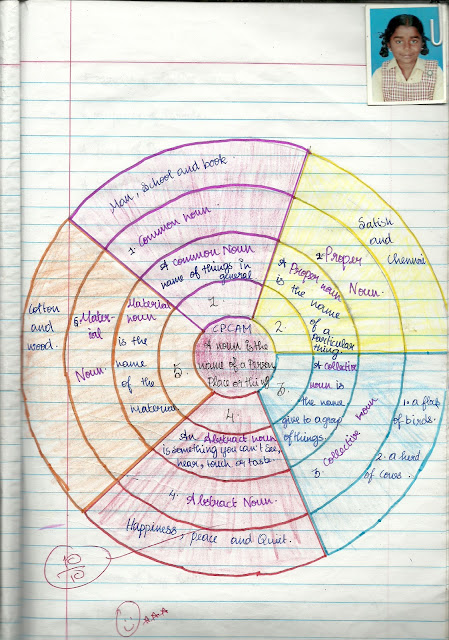 Man, School and book
1. Common noun
A common Noun
name of things in
general
1.
Satish
and
Chennai
2. Proper
Noun.
A Proper noun
is the name
of a
Particular
thing.
2.
CPCAM
A noun is the
name of a Person
Place or thing
3.
A collective
noun is
the name
give to a group
of things.
3. collective noun
1. a flock
of birds.
2. a herd
of cows.
4.
An Abstract noun
is something you can't see,
hear, touch or taste.
4. Abstract Noun.
Happiness Peace and Quiet.
5.
Material
noun
is the
name
of the
material
5. Mater-
ial
Noun.
Cotton
and
wood.
10
10
A.A.A